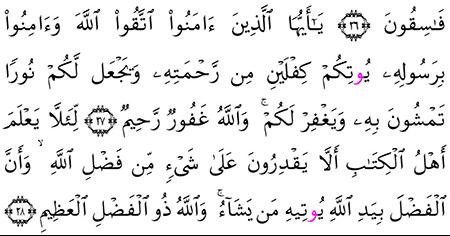 فَٰسِقُونَ ٣٦ يَـٰٓأَيُّهَا ٱلَّذِينَ ءَامَنُوا۟ ٱتَّقُوا۟ ٱللَّهَ وَءَامِنُوا۟
بِرَسُولِهِۦ يُوتِكُمْ كِفْلَيْنِ مِن رَّحْمَتِهِۦ وَيَجْعَل لَّكُمْ نُورًا
تَمْشُونَ بِهِۦ وَيَغْفِرْ لَكُمْ ۚ وَٱللَّهُ غَفُورٌ رَّحِيمٌ ٣٧ لِّئَلَّا يَعْلَمَ
أَهْلُ ٱلْكِتَـٰبِ أَلَّا يَقْدِرُونَ عَلَىٰ شَىْءٍ مِّن فَضْلِ ٱللَّهِ ۙ وَأَنَّ
ٱلْفَضْلَ بِيَدِ ٱللَّهِ يُوتِيهِ مَن يَشَآءُ ۚ وَٱللَّهُ ذُو ٱلْفَضْلِ ٱلْعَظِيمِ ٣٨